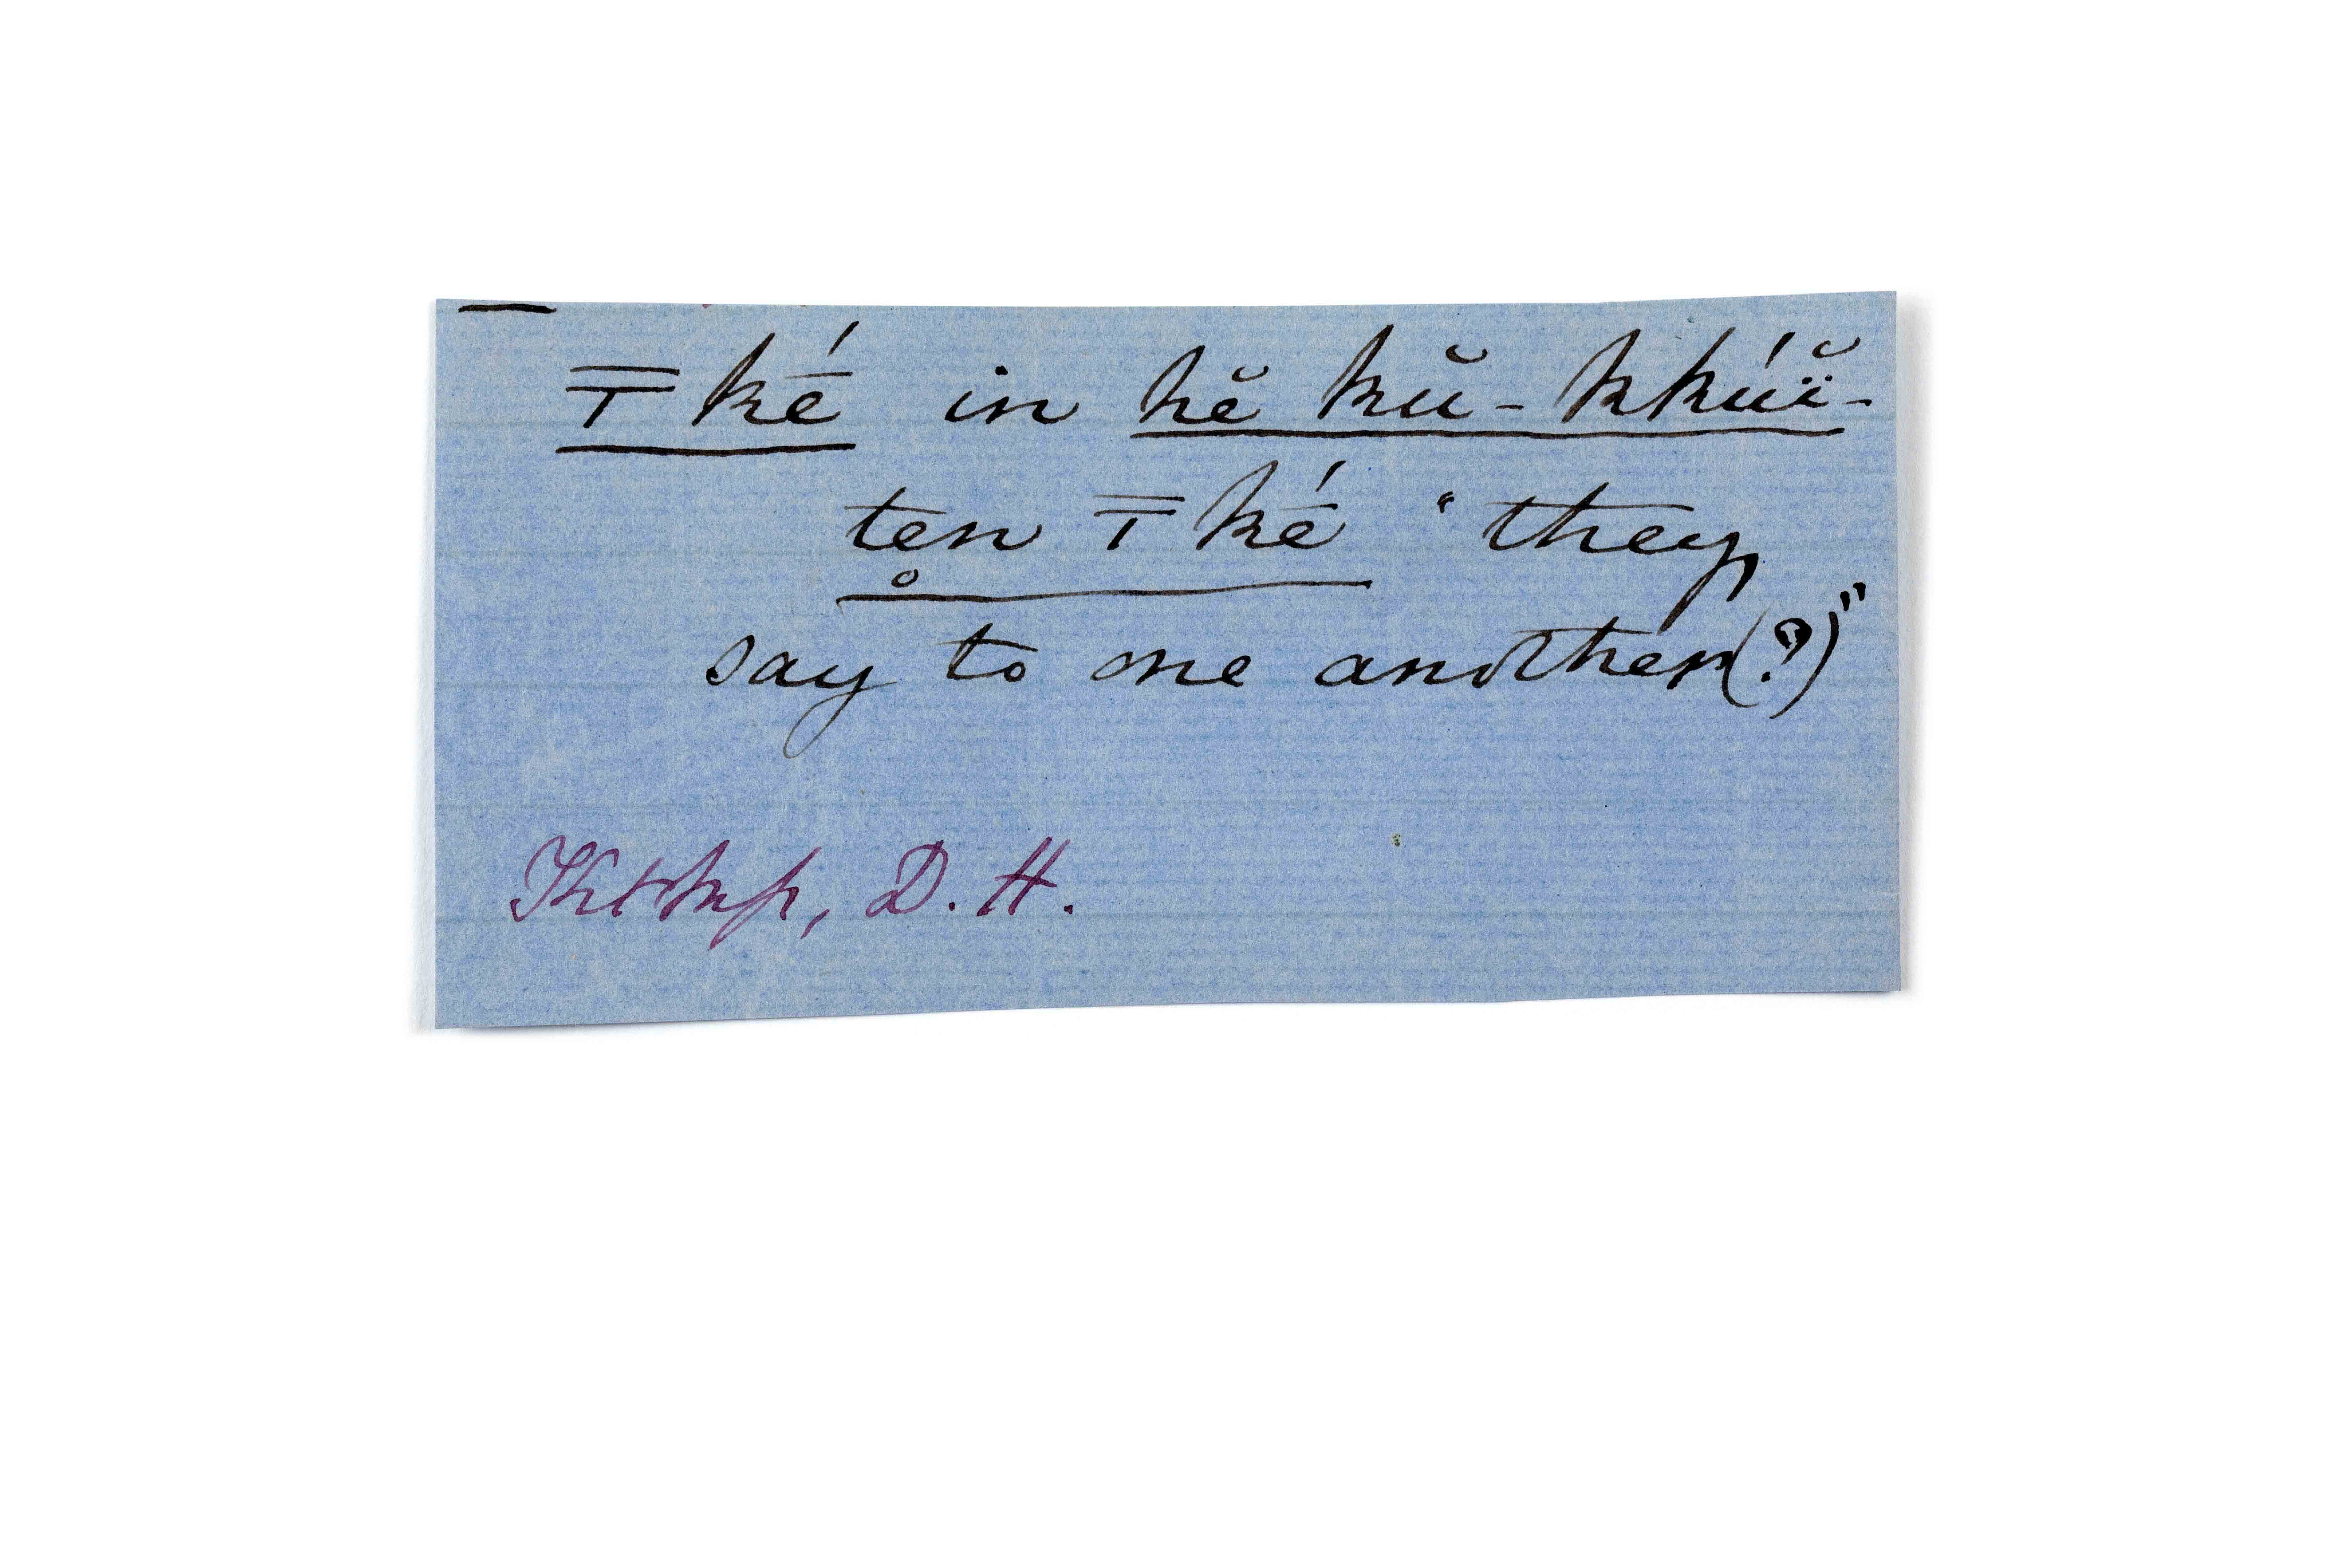 𝼊̿ ké̄ in hĕ kŭ-kkúı̈̆-
ten̥ 𝼊̿ ké̄ "they
say to one another(?)"
Ktthp, D.H.